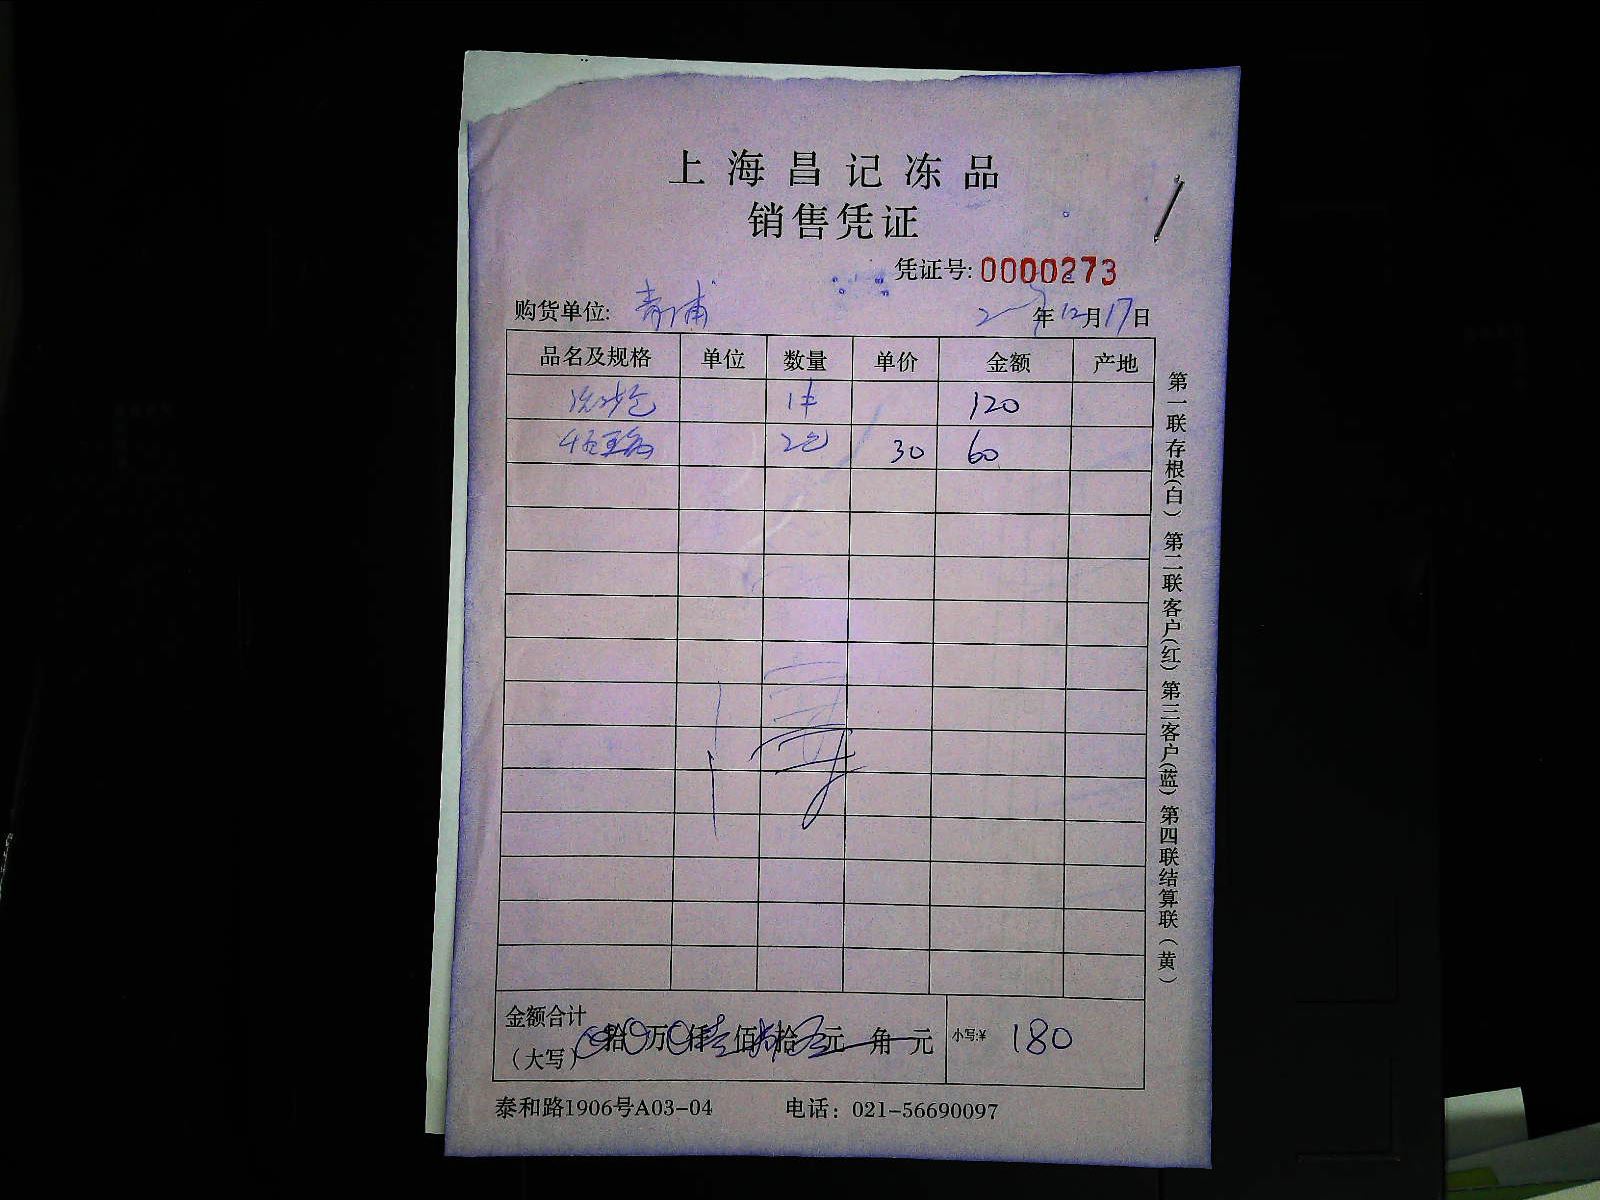 上海昌记冻品
销售凭证
凭证号: 0000273
购货单位: 青浦 年12月17日
品名及规格 单位 数量 单价 金额 产地
1件 120
2包 30 60
金额合计（大写） 拾 万 仟壹佰 拾 元 角 元 小写:¥ 180
泰和路1906号A03-04 电话：021-56690097
第一联存根(白) 第二联客户(红) 第三客户(蓝) 第四联结算联(黄)